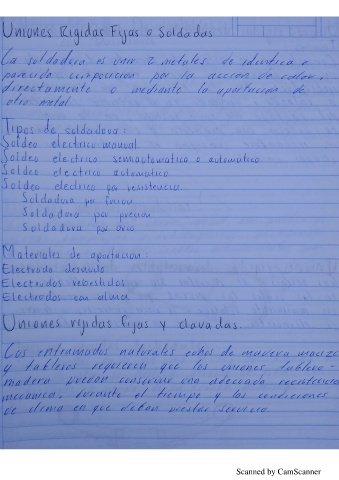 Uniones Rigidas Fijas o Soldadas
La soldadura es unir 2 metales de identica o
parecida composicion por la accion de calor,
directamente o mediante la aportacion de
otro metal.
Tipos de soldadura:
Soldeo electrico manual
Soldeo electrico semiautomatico o automatico
Soldeo electrico automatico
Soldeo electrico por resistencia
Soldadura por fusion
Soldadura por presion
Soldadura por arco
Materiales de aportacion:
Electrodo desnudo
Electrodos rebestidos
Electrodos con alma
Uniones rigidas fijas y clavadas.
Los entramados naturales de madera maciza
y tableros requieren que las uniones tablero-
madera puedan conservar una adecuada resistencia
mecanica, durante el tiempo y las condiciones
de clima en que deban prestar servicio.
Scanned by CamScanner